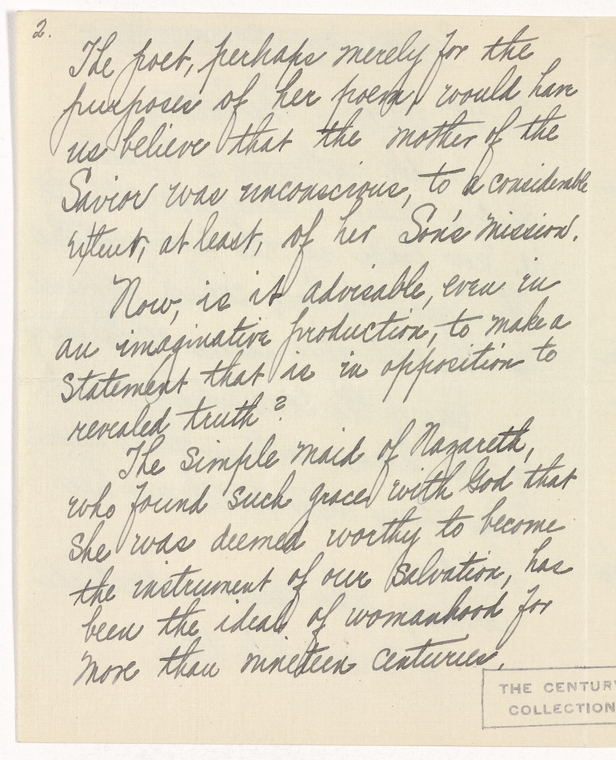 2.
The poet, perhaps merely for the
purposes of her poem, would have
us believe that the mother of the
Savior was unconscious, to a considerable
extent, at least, of her Son's mission.
Now, is it advisable, even in
an imaginative production, to make a
statement that is in opposition to
revealed truth?
The simple maid of Nazareth,
who found such grace with God that
she was deemed worthy to become
the instrument of our Salvation, has
been the ideal of womanhood for
more than nineteen centuries.
THE CENTURY
COLLECTION